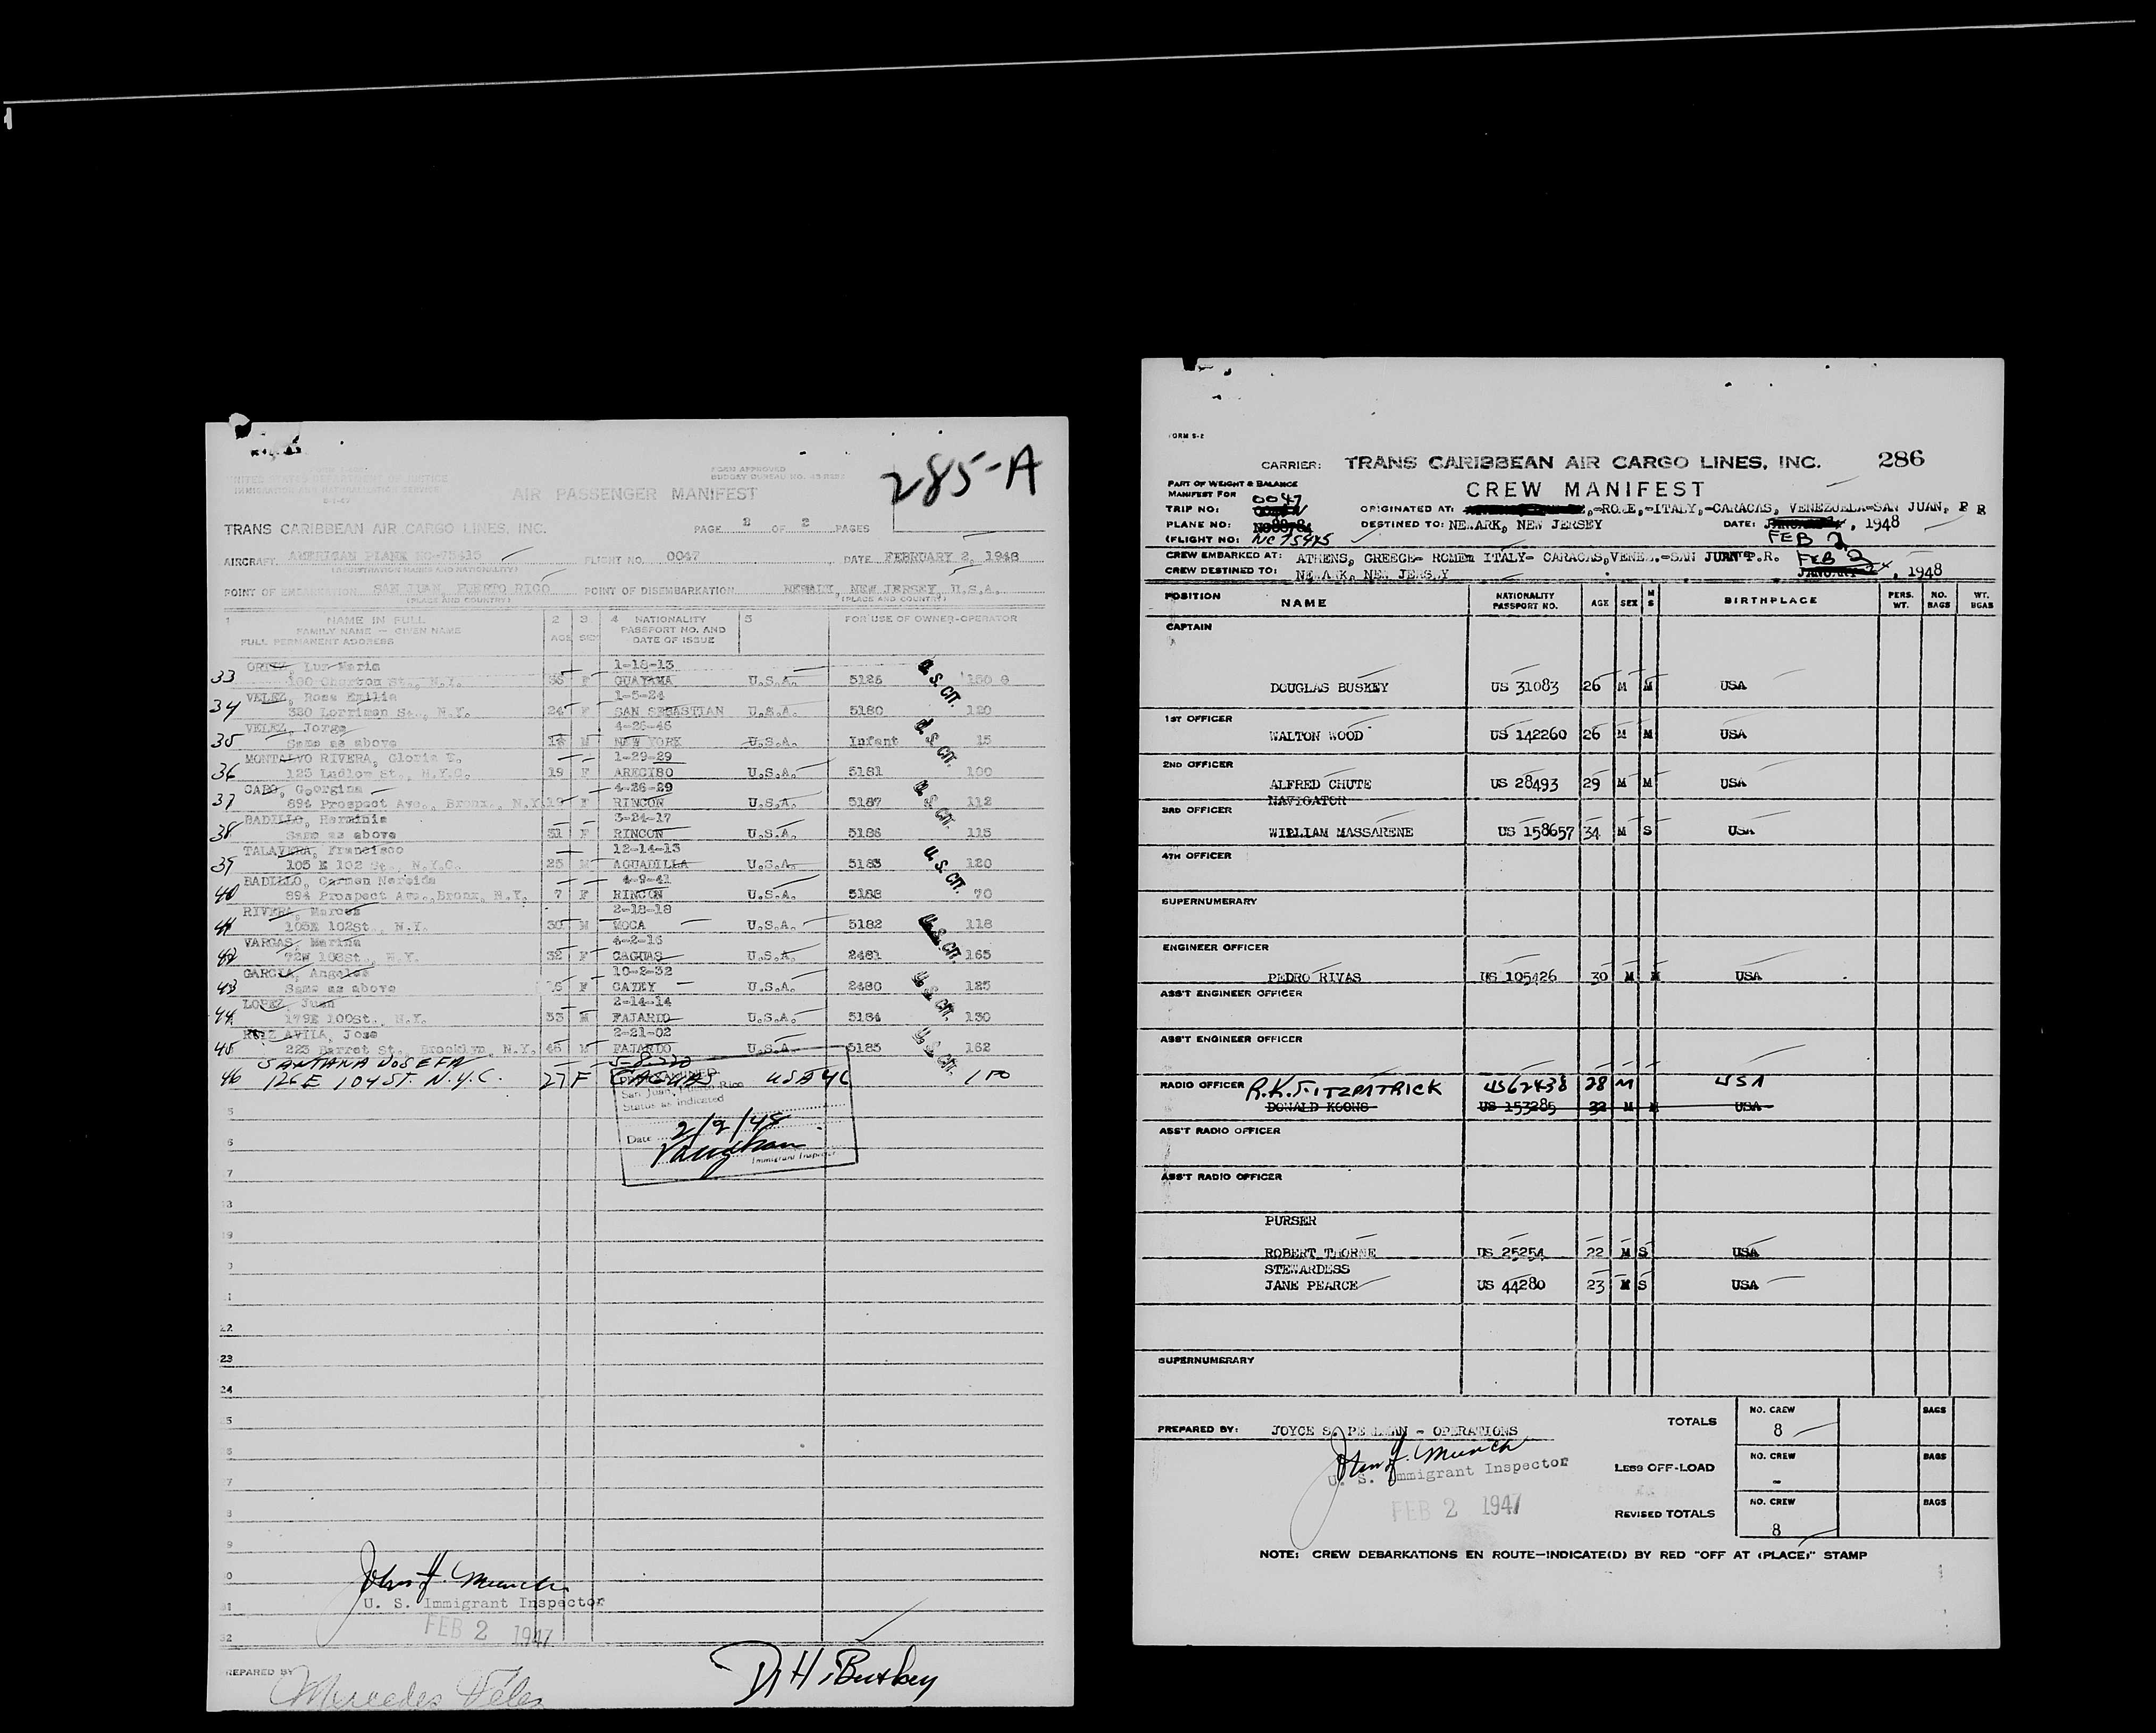 285-A
UNITED STATES DEPARTMENT OF JUSTICE
IMMIGRATION AND NATURALIZATION SERVICE
FORM APPROVED
BUDGET BUREAU NO.
AIR PASSENGER MANIFEST
TRANS CARIBBEAN AIR CARGO LINES, INC.
PAGE 2 OF 2 PAGES
AIRCRAFT AMERICAN PLANE NC-75415 FLIGHT NO. 0047 DATE FEBRUARY 2, 1948
(REGISTRATION MARKS AND NATIONALITY)
POINT OF EMBARKATION SAN JUAN, PUERTO RICO POINT OF DISEMBARKATION NEWARK, NEW JERSEY, U.S.A.
(PLACE AND COUNTRY) (PLACE AND COUNTRY)
1 NAME IN FULL 2 3 4 NATIONALITY 5 FOR USE OF OWNER-OPERATOR
FAMILY NAME — GIVEN NAME AGE SEX PASSPORT NO. AND
FULL PERMANENT ADDRESS DATE OF ISSUE
ORTIZ, Luz Maria 1-18-13
33 F GUAYAMA U.S.A. 5126 U.S. CIT.
VELEZ, Rosa Emilia 1-5-24
34 330 Lorrimon St., N.Y. 24 F SAN SEBASTIAN U.S.A. 5180 120
VELEZ, Jorge 4-26-46
35 Same as above M NEW YORK U.S.A. Infant 15 U.S. CIT.
MONTALVO RIVERA, Gloria E. 1-29-29
36 125 Ludlow St., N.Y.C. 19 F ARECIBO U.S.A. 5181 100
CABO, Georgina 4-26-29
37 894 Prospect Ave., Bronx., N.Y. 19 F RINCON U.S.A. 5187 112 U.S. CIT.
BADILLO, Herminia 3-24-17
38 Same as above 31 F RINCON U.S.A. 5186 115
TALAVERA, Francisco 12-14-13
39 105 E 102 St., N.Y.C. 25 M AGUADILLA U.S.A. 5183 120 U.S. CIT.
BADILLO, Carmen Nereida 4-9-41
40 894 Prospect Ave., Bronx, N.Y. 7 F RINCON U.S.A. 5188 70
RIVERA, Marcos 2-18-18
41 105E 102St., N.Y. 30 M MOCA U.S.A. 5182 118 U.S. CIT.
VARGAS, Marina 4-2-16
42 72W 108St., N.Y. 32 F CAGUAS U.S.A. 2481 165
GARCIA, Angeles 10-2-32
43 Same as above 16 F CAYEY U.S.A. 2480 125 U.S. CIT.
LOPEZ, Juan 2-14-14
44 179E 100St., N.Y. 33 M FAJARDO U.S.A. 5184 130
RUIZ AVILA, Jose 2-21-02
45 223 Barret St., Brooklyn, N.Y. 46 M FAJARDO U.S.A. 5185 162 U.S. CIT.
SANTANA JOSEFA
46 126 E 104 ST. N.Y.C. 27 F CAGUAS USA
San Juan, Puerto Rico
Status as indicated
Date 2/2/48
Vaughan
Immigrant Inspector
22
23
24
John F. Munch
U. S. Immigrant Inspector
FEB 2 1947
PREPARED BY Mercedes Velez
D. H. Buskey
FORM S-2
CARRIER: TRANS CARIBBEAN AIR CARGO LINES, INC. 286
PART OF WEIGHT & BALANCE
MANIFEST FOR
CREW MANIFEST
TRIP NO: 0047 ORIGINATED AT: -ROME,-ITALY,-CARACAS, VENEZUELA-SAN JUAN, P R
PLANE NO: DESTINED TO: NEWARK, NEW JERSEY DATE: FEB 2, 1948
(FLIGHT NO: NC 75415
CREW EMBARKED AT: ATHENS, GREECE- ROME ITALY- CARACAS,VENEZ.-SAN JUAN P.R. FEB 2
CREW DESTINED TO: NEWARK, NEW JERSEY JANUARY , 1948
POSITION NAME NATIONALITY PASSPORT NO. AGE SEX M S BIRTHPLACE PERS. WT. NO. BAGS WT. BGAS
CAPTAIN
DOUGLAS BUSKEY US 31083 26 M M USA
1ST OFFICER
WALTON WOOD US 142260 26 M M USA
2ND OFFICER
ALFRED CHUTE US 28493 29 M M USA
NAVIGATOR
3RD OFFICER
WILLIAM MASSARENE US 158657 34 M S USA
4TH OFFICER
SUPERNUMERARY
ENGINEER OFFICER
PEDRO RIVAS US 105426 30 M M USA
ASS'T ENGINEER OFFICER
ASS'T ENGINEER OFFICER
RADIO OFFICER R.K. FITZPATRICK US62438 28 M USA
DONALD KOONS US 153285 32 M M USA
ASS'T RADIO OFFICER
ASS'T RADIO OFFICER
PURSER
ROBERT THORNE US 25254 22 M S USA
STEWARDESS
JANE PEARCE US 44280 23 S USA
SUPERNUMERARY
PREPARED BY: JOYCE S. PERLMAN - OPERATIONS
John F. Munch
U. S. Immigrant Inspector
FEB 2 1947
TOTALS NO. CREW 8 BAGS
LESS OFF-LOAD NO. CREW - BAGS
REVISED TOTALS NO. CREW 8 BAGS
NOTE: CREW DEBARKATIONS EN ROUTE—INDICATE(D) BY RED "OFF AT (PLACE)" STAMP